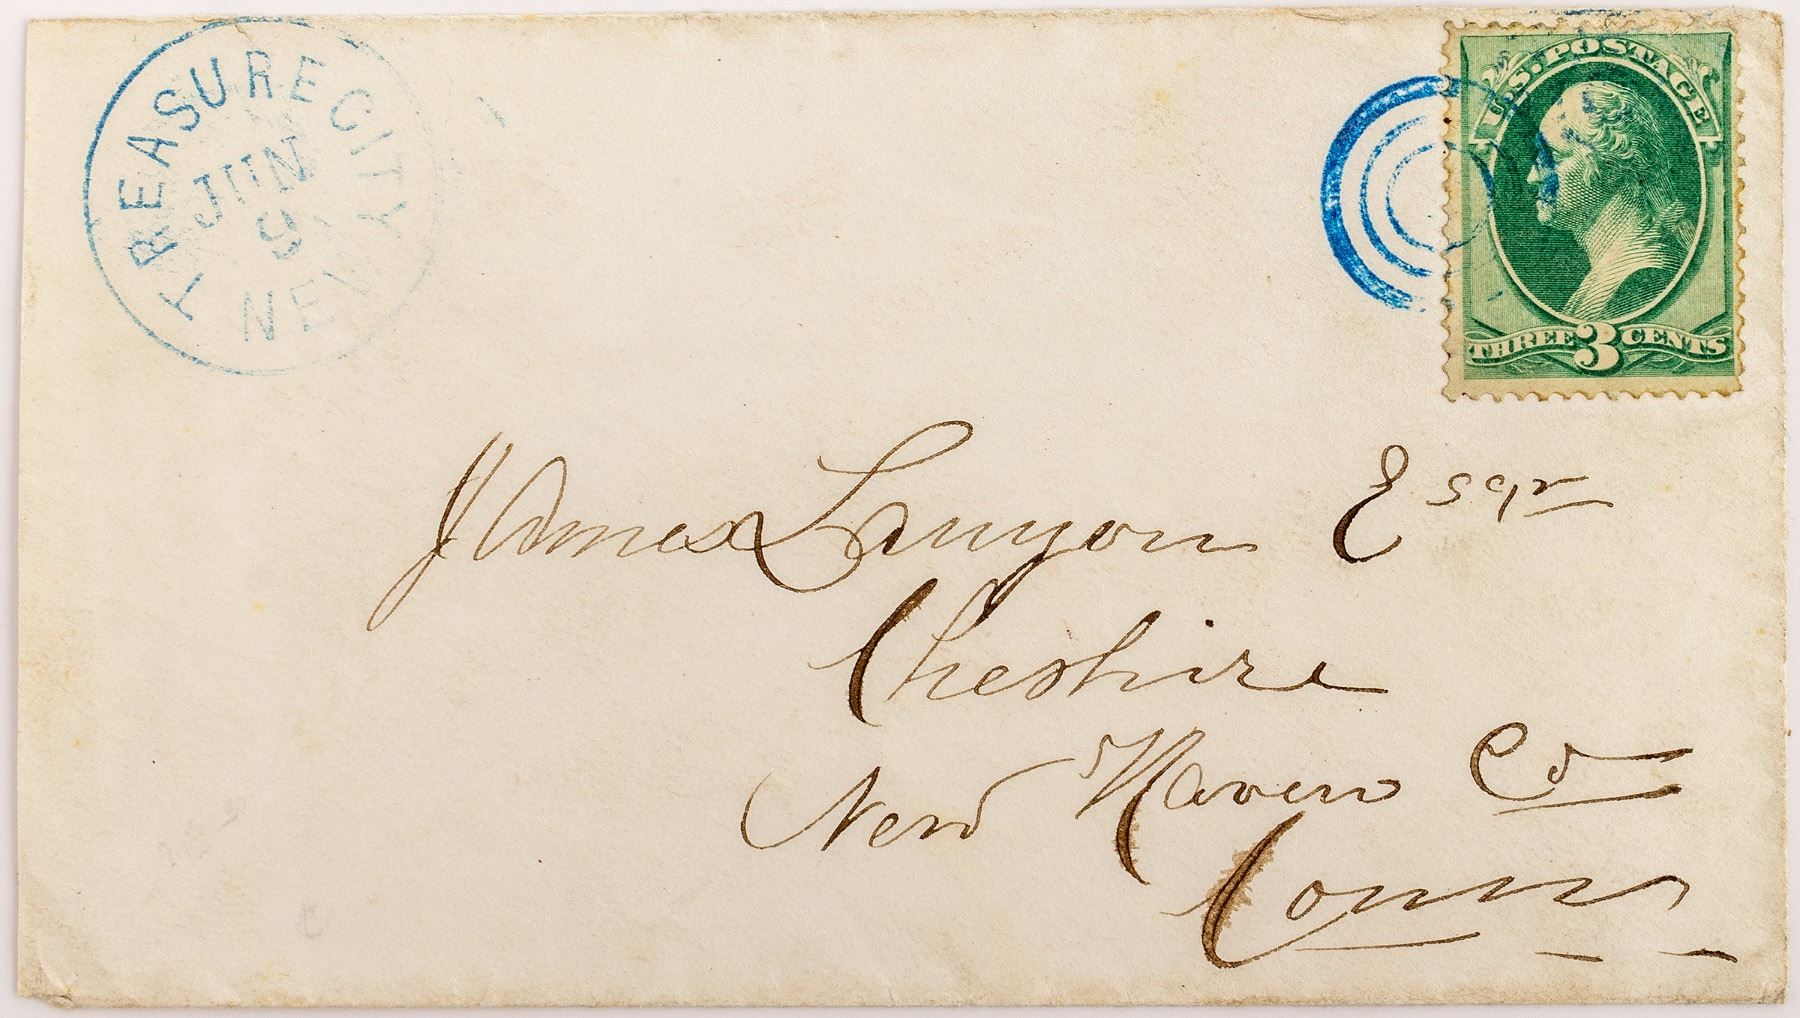 TREASURE CITY
JUN
9
NEV
U.S. POSTAGE
THREE 3 CENTS
James Lanyon Esqr
Cheshire
New Haven Co
Conn